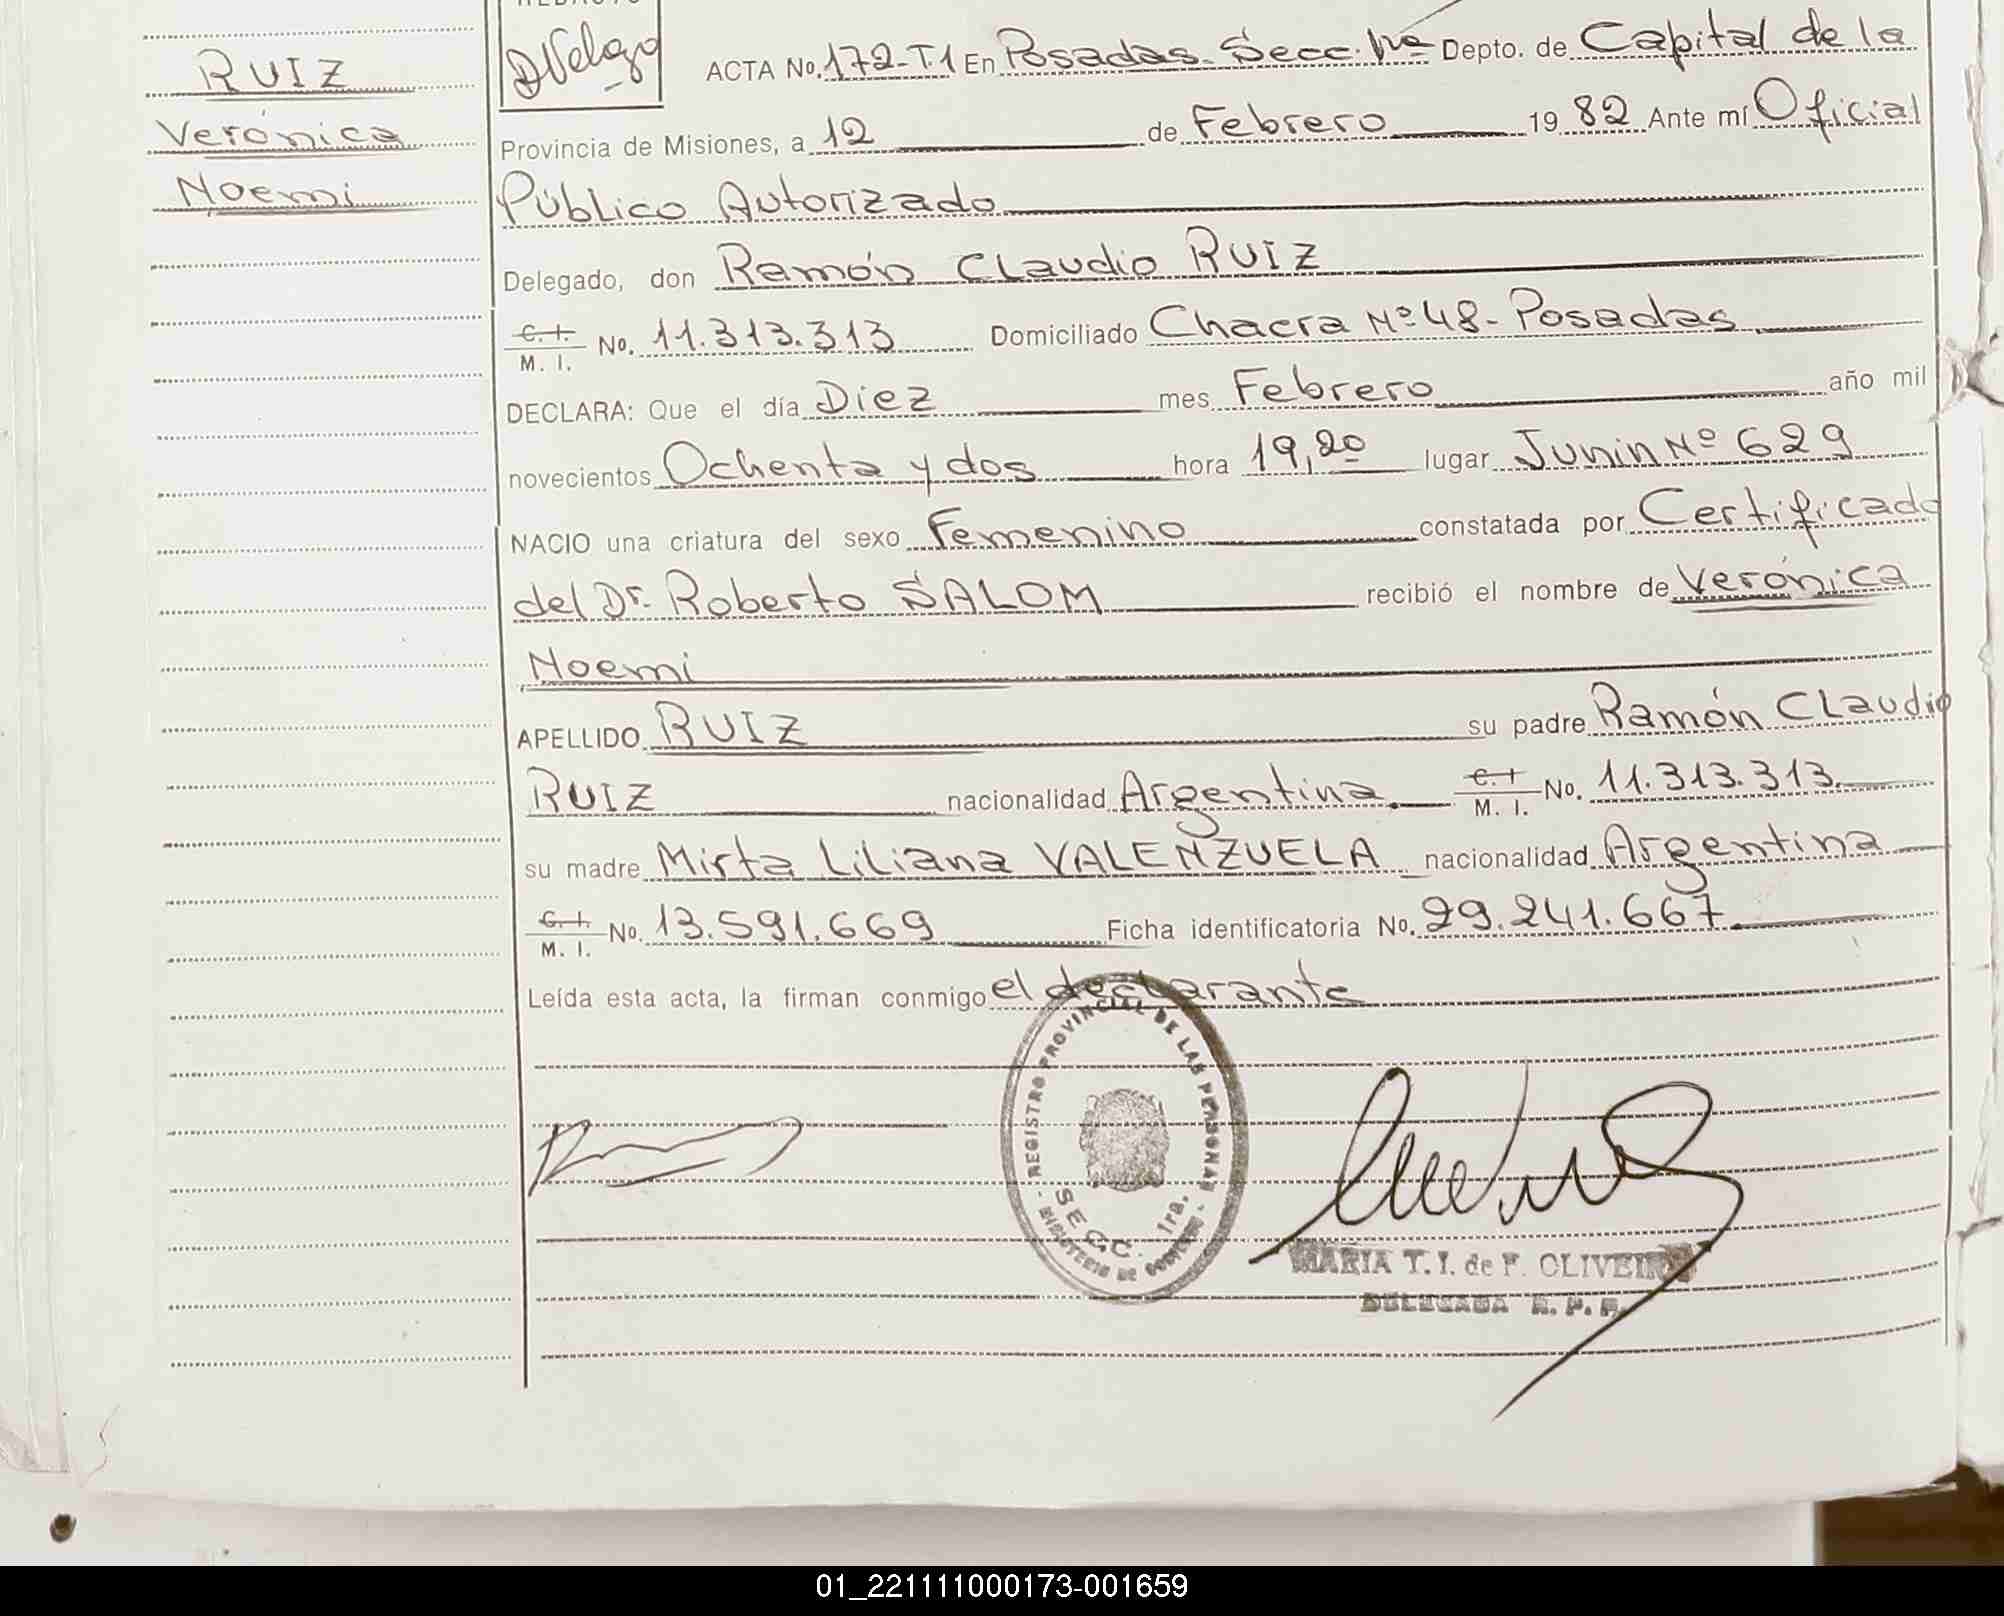 RUIZ
Verónica
Noemi
DVelazo
ACTA No. 172-T.1 En Posadas. Secc. 1ra Depto. de Capital de la
Provincia de Misiones, a 12 de Febrero 1982 Ante mí Oficial
Público Autorizado
Delegado, don Ramón Claudio RUIZ
C.I. M. I. No. 11.313.313 Domiciliado Chacra Nº 48- Posadas
DECLARA: Que el día Diez mes Febrero año mil
novecientos Ochenta y dos hora 19,20 lugar Junin Nº 629
NACIO una criatura del sexo Femenino constatada por Certificado
del Dr. Roberto SALOM recibió el nombre de Verónica
Noemi
APELLIDO RUIZ su padre Ramón Claudio
RUIZ nacionalidad Argentina. C.I M. I. No. 11.313.313.
su madre Mirta Liliana VALENZUELA nacionalidad Argentina
C.I. M. I. No. 13.591.669 Ficha identificatoria No. 29.241.667
Leída esta acta, la firman conmigo el declarante
REGISTRO PROVINCIAL DE LAS PERSONAS
SECC. 1ra.
MINISTERIO DE GOBIERNO
MARIA T. I. de F. OLIVEIRA
DELEGADA R. P. P.
01_221111000173-001659